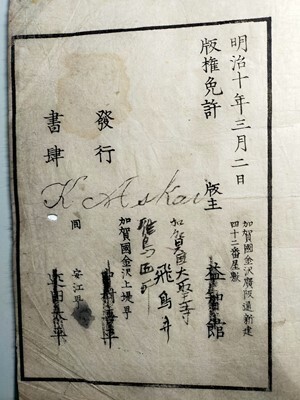 明治十年三月二日
版權免許
加賀國金沢廣阪通新建
四十二番屋敷
版主
益智館
加賀國大聖寺
鷹匠町
飛鳥井
K Askai
發行
書肆
加賀國金沢上堤町
中村喜平
同 安江町
太平